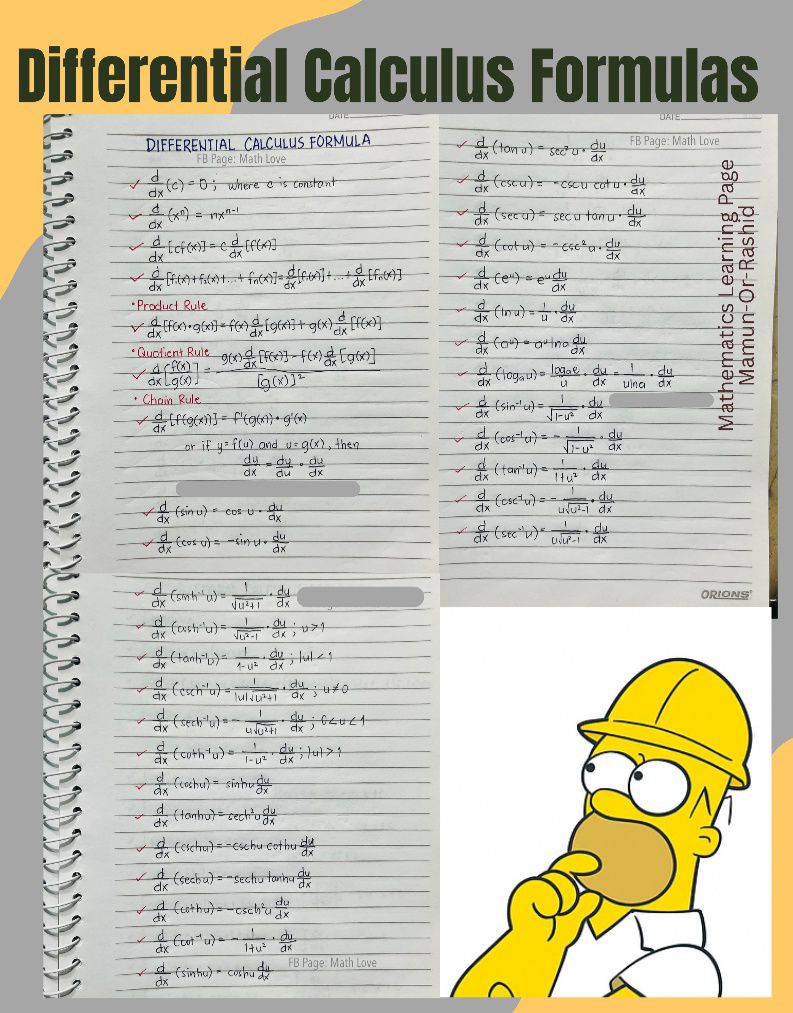 Differential Calculus Formulas
DATE
DIFFERENTIAL CALCULUS FORMULA
FB Page: Math Love
✓ d/dx (c) = 0 ; where c is constant
✓ d/dx (xⁿ) = nxⁿ⁻¹
✓ d/dx [cf(x)] = c d/dx [f(x)]
✓ d/dx [f₁(x)+f₂(x)+...+fₙ(x)] = d/dx [f₁(x)]+...+ d/dx [fₙ(x)]
• Product Rule
✓ d/dx [f(x)•g(x)] = f(x) d/dx [g(x)] + g(x) d/dx [f(x)]
• Quotient Rule
✓ d/dx [f(x)/g(x)] = g(x) d/dx [f(x)] - f(x) d/dx [g(x)] / [g(x)]²
• Chain Rule
✓ d/dx [f(g(x))] = f'(g(x)) • g'(x)
or if y = f(u) and u = g(x), then
dy/dx = dy/du • du/dx
✓ d/dx (sin u) = cos u • du/dx
✓ d/dx (cos u) = -sin u • du/dx
DATE
FB Page: Math Love
✓ d/dx (tan u) = sec² u • du/dx
✓ d/dx (csc u) = -csc u cot u • du/dx
✓ d/dx (sec u) = sec u tan u • du/dx
✓ d/dx (cot u) = -csc² u • du/dx
✓ d/dx (eᵘ) = eᵘ du/dx
✓ d/dx (ln u) = 1/u • du/dx
✓ d/dx (aᵘ) = aᵘ lna du/dx
✓ d/dx (logₐu) = logₐe/u • du/dx = 1/ulna • du/dx
✓ d/dx (sin⁻¹u) = 1/√(1-u²) • du/dx
✓ d/dx (cos⁻¹u) = - 1/√(1-u²) • du/dx
✓ d/dx (tan⁻¹u) = 1/1+u² • du/dx
✓ d/dx (csc⁻¹u) = - 1/u√(u²-1) • du/dx
✓ d/dx (sec⁻¹u) = 1/u√(u²-1) • du/dx
Mathematics Learning Page
Mamun-Or-Rashid
ORIONS
✓ d/dx (sinh⁻¹u) = 1/√(u²+1) • du/dx
✓ d/dx (cosh⁻¹u) = 1/√(u²-1) • du/dx ; u>1
✓ d/dx (tanh⁻¹u) = 1/1-u² • du/dx ; |u|<1
✓ d/dx (csch⁻¹u) = 1/|u|√(u²+1) • du/dx ; u≠0
✓ d/dx (sech⁻¹u) = - 1/u√(u²+1) • du/dx ; 0<u<1
✓ d/dx (coth⁻¹u) = 1/1-u² • du/dx ; |u|>1
✓ d/dx (coshu) = sinhu du/dx
✓ d/dx (tanhu) = sech²u du/dx
✓ d/dx (cschu) = -cschu cothu du/dx
✓ d/dx (sechu) = -sechu tanhu du/dx
✓ d/dx (cothu) = -csch²u du/dx
✓ d/dx (cot⁻¹u) = - 1/1+u² • du/dx
✓ d/dx (sinhu) = coshu du/dx
FB Page: Math Love